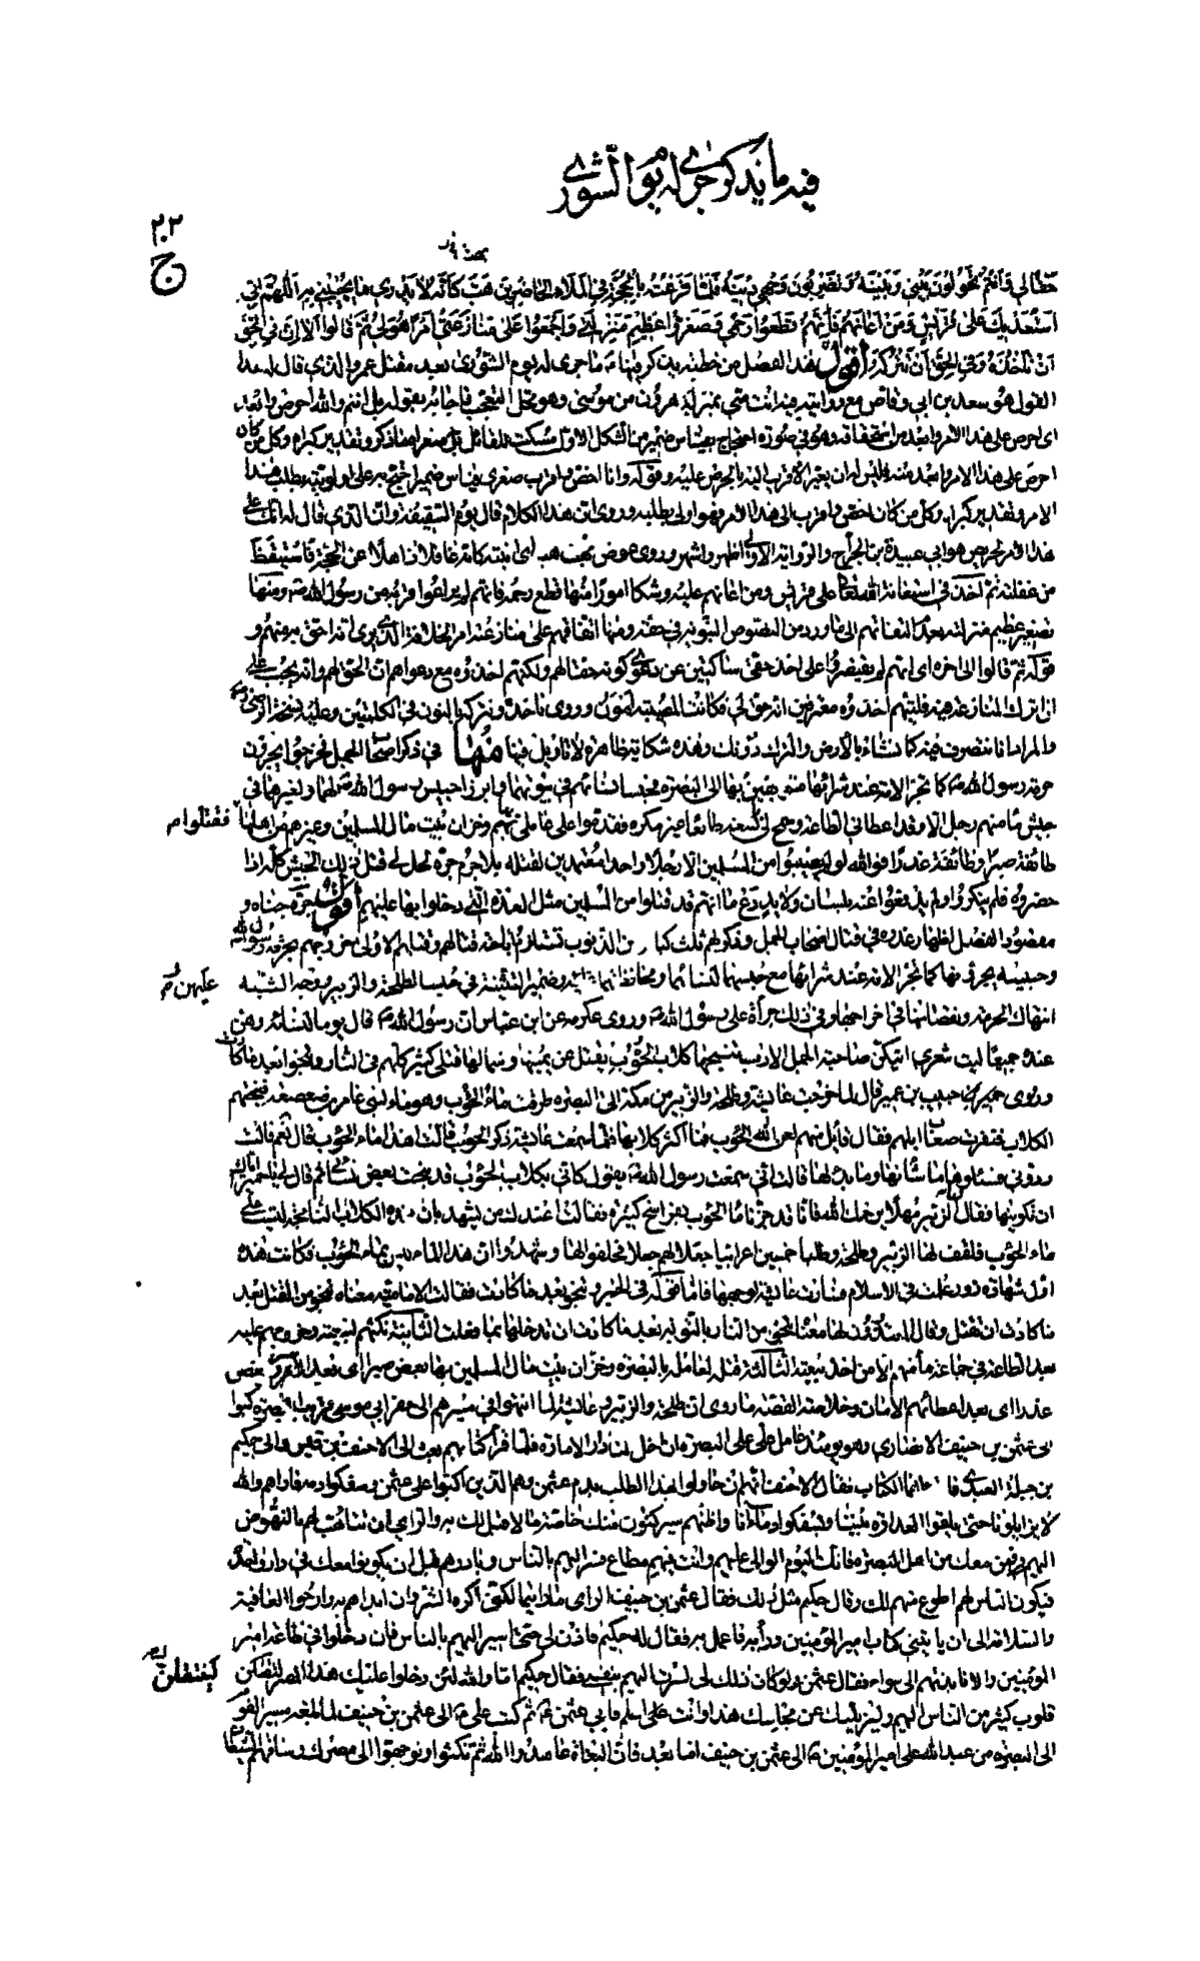 فيه ما يذكر جرى له يوم الشورى
٢٠٣
ج
حقا لي وانتم تحولون بيني وبينه وتضربون وجهي دونه فلما قرعته بالحجة في الملاء الحاضرين هب كانه لا يدري ما يجيبني به اللهم اني
استعديك على قريش ومن اعانهم فانهم قطعوا رحمي وصغروا عظيم منزلتي واجمعوا على منازعتي امرا هو لي ثم قالوا الا ان في الحق
ان تاخذه وفي الحق ان تتركه اقول هذا الفصل من خطبة يذكر فيها ما جرى له يوم الشورى بعد مقتل عمر والذي قال له هذا
القول هو سعد بن ابي وقاص مع روايته فيه انت مني بمنزلة هرون من موسى وهو محل التعجب فاجابه بقوله بل انتم والله احرص وابعد
اي احرص على هذا الامر وابعد من استحقاقه وهو في صورة احتجاج بقياس ضمير من الشكل الاول مسكت للقائل
احرص على هذا الامر وابعد منه فليس له ان يعير الاقرب اليه بالحرص عليه وقوله وانا اخص واقرب صغرى قياس ضمير احتج به على اولويته بطلب هذا
الامر وتقدير كبراه وكل من كان اخص واقرب الى هذا الامر فهو اولى بطلبه وروى ان هذا الكلام قال يوم السقيفة وان الذي قال له انك على
هذا الامر لحريص هو ابي عبيدة بن الجراح والرواية الاولى اظهر واشهر وروى عوض بهت هب اي انتبه كانه كان غافلا ذاهلا عن الحجة فاستيقظ
من غفلته ثم اخذ في استعانة الله تعالى على قريش ومن اعانهم عليه وشكا امورا منها قطع رحمه فانهم لم يراعوا قربه من رسول الله ص ومنها
تصغير عظيم منزلته بعدم التفاتهم الى ما ورد من النصوص النبوية في حقه ومنها اتفاقهم على منازعته امر الخلافة الذي يرى انه احق به منهم و
قوله ثم قالوا الى اخره اي انهم لم يقتصروا على اخذ حقي ساكتين عن دعوى كونه حقا لهم ولكنهم اخذوه مع دعواهم ان الحق لهم وانه يجب علي
ان اترك المنازعة فيه فليتهم اخذوه معترفين انه حق لي فكانت المصيبة اهون وروى ناخذه ونتركه بالنون في الكلمتين وعليه نسخة الرضي
والمراد انا نتصرف فيه كما نشاء بالاخذ والترك دونك وهذه شكاية ظاهرة لا تاويل فيها منها في ذكر اصحاب الجمل فخرجوا يجرون
حرمة رسول الله ص كما تجر الامة عند شرائها متوجهين بها الى البصرة فحبسا نسائهما في بيوتهما وابرزا حبيس رسول الله ص لهما ولغيرهما في
جيش ما منهم رجل الا وقد اعطاني الطاعة وسمح لي بالبيعة طائعا غير مكره فقدموا على عاملي بها وخزان بيت مال المسلمين وغيرهم من اهلها فقتلوا
طائفة صبرا وطائفة غدرا فوالله لو لم يصيبوا من المسلمين الا رجلا واحدا معتمدين لقتله بلا جرم جره لحل لي قتل ذلك الجيش كله اذ
حضروه فلم ينكروا ولم يدفعوا عنه بلسان ولا يد دع ما انهم قد قتلوا من المسلمين مثل العدة التي دخلوا بها عليهم اقول جره جناه و
مقصود الفصل اظهار عذره في قتال اصحاب الجمل وذكر لهم ثلث كبائر من الذنوب تستلزم اباحة قتالهم وقتلهم الاولى خروجهم بحرمة رسول الله
وحبيسه يجرونها كما تجر الامة عند شرائها مع حبسهما لنسائهما ومحافظتهما وضمير التثنية في حبسا لطلحة والزبير ووجه الشبه
عليهن
انتهاك الحرمة ونقصانها في اخراجها وفي ذلك جراة على رسول الله ص وروى عكرمة عن ابن عباس ان رسول الله ص قال يوما لنسائه وهن
عنده جميعا ليت شعري ايتكن صاحبة الجمل الادبب تنبحها كلاب الحوءب يقتل عن يمينها وشمالها قتلى كثير كلهم في النار وتنجوا بعد ما كادت
وروى حبيب بن عمير قال لما خرجت عايشة وطلحة والزبير من مكة الى البصرة طرقت ماء الحوءب وهو ماء لبني عامر بن صعصعة فنبحتهم
الكلاب فنفرت صعاب ابلهم فقال قائل منهم لعن الله الحوءب فما اكثر كلابها فلما سمعت عايشة ذكر الحوءب قالت اهذا ماء الحوءب قال نعم فقالت
ردوني فسئلوها ما شانها وما بدا لها قالت اني سمعت رسول الله ص يقول كاني بكلاب الحوءب قد نبحت بعض نسائي ثم قال لي يا حميراء اياك
ان تكونيها فقال الزبير مهلا يرحمك الله فانا قد جزنا ماء الحوءب بفراسخ كثيرة فقالت اعندك من يشهد بان هذه الكلاب النابحة ليست على
ماء الحوءب فلفق لها الزبير وطلحة وطلبا خمسين اعرابيا جعلا لهم جعلا فحلفوا لها وشهدوا ان هذا الماء ليس بماء الحوءب فكانت هذه
اول شهادة زور علمت في الاسلام فسارت عايشة لوجهها فاما قوله في الخبر وتنجو بعد ما كادت فقالت الامامية معناه تنجو من القتل بعد
ما كادت ان تقتل وقال المعتذرون لها معناه تنجو من النار بالتوبة بعد ما كادت ان تدخلها بما فعلت الثانية نكثهم لبيعته وخروجهم عليه
بعد الطاعة في جماعة ما منهم الا من اخذ بيعته الثالثة قتلهم لعامله بالبصرة وخزان بيت مال المسلمين بها بعض صبرا اي بعد الاسر وبعض
غدرا اي بعد اعطائهم الامان وخلاصة القصة ما روى ان طلحة والزبير وعايشة لما انتهوا في مسيرهم الى حفر ابي موسى قريب البصرة كتبوا
الى عثمن بن حنيف الانصاري وهو يومئذ عامل علي على البصرة ان اخل لنا دار الامارة فلما قرا كتابهم بعث الى الاحنف بن قيس والى حكيم
بن جبلة العبدي فاقراهما الكتاب فقال الاحنف انهم ان حاولوا لهذا الطلب بدم عثمن وهم الذين اكبوا على عثمن وسفكوا دمه فاراهم والله
لا يزايلونا حتى يلقوا العداوة بيننا ويسفكوا دماءنا واظنهم سيركبون منك خاصة ما لا قبل لك به والراي ان تتاهب لهم بالنهوض
اليهم فيمن معك من اهل البصرة فانك اليوم الوالي عليهم وانت فيهم مطاع فسر اليهم بالناس وبادرهم قبل ان يكونوا معك في دار واحدة
فيكون الناس لهم اطوع منهم لك وقال حكيم مثل ذلك فقال عثمن بن حنيف الراي ما رايتما لكني اكره الشر وان ابداهم به وارجوا العافية
والسلامة الى ان ياتيني كتاب امير المؤمنين ورايه فاعمل به فقال له حكيم فاذن لي حتى اسير اليهم بالناس فان دخلوا في طاعة امير
المؤمنين والا نابذتهم الى سواء فقال عثمن لو كان ذلك لي لسرت اليهم بنفسي فقال حكيم اما والله لئن دخلوا عليك هذا المصر لينتقلن
قلوب كثير من الناس اليهم وليزيلنك عن مجلسك هذا وانت اعلم فابى عثمن ثم كتب علي ع الى عثمن بن حنيف لما بلغه مسير القوم
الى البصرة من عبد الله علي امير المؤمنين ع الى عثمن بن حنيف اما بعد فان البغاة عاهدوا الله ثم نكثوا وتوجهوا الى مصرك وساقهم الشيطان